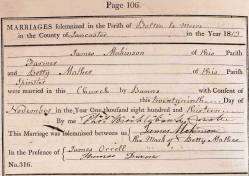 Page 106.
MARRIAGES solemnized in the Parish of Bolton le Moors
in the County of Lancaster in the Year 1819
James Makinson of this Parish
Farmer
and Betty Mather of this Parish
Spinster
were married in this Church by Banns with Consent of
this Twenty ninth Day of
November in the Year One thousand eight hundred and
By me
This Marriage was solemnized between us James Makinson
The Mark of Betty Mather
In the Presence of James Orrill
Thomas
No. 316.